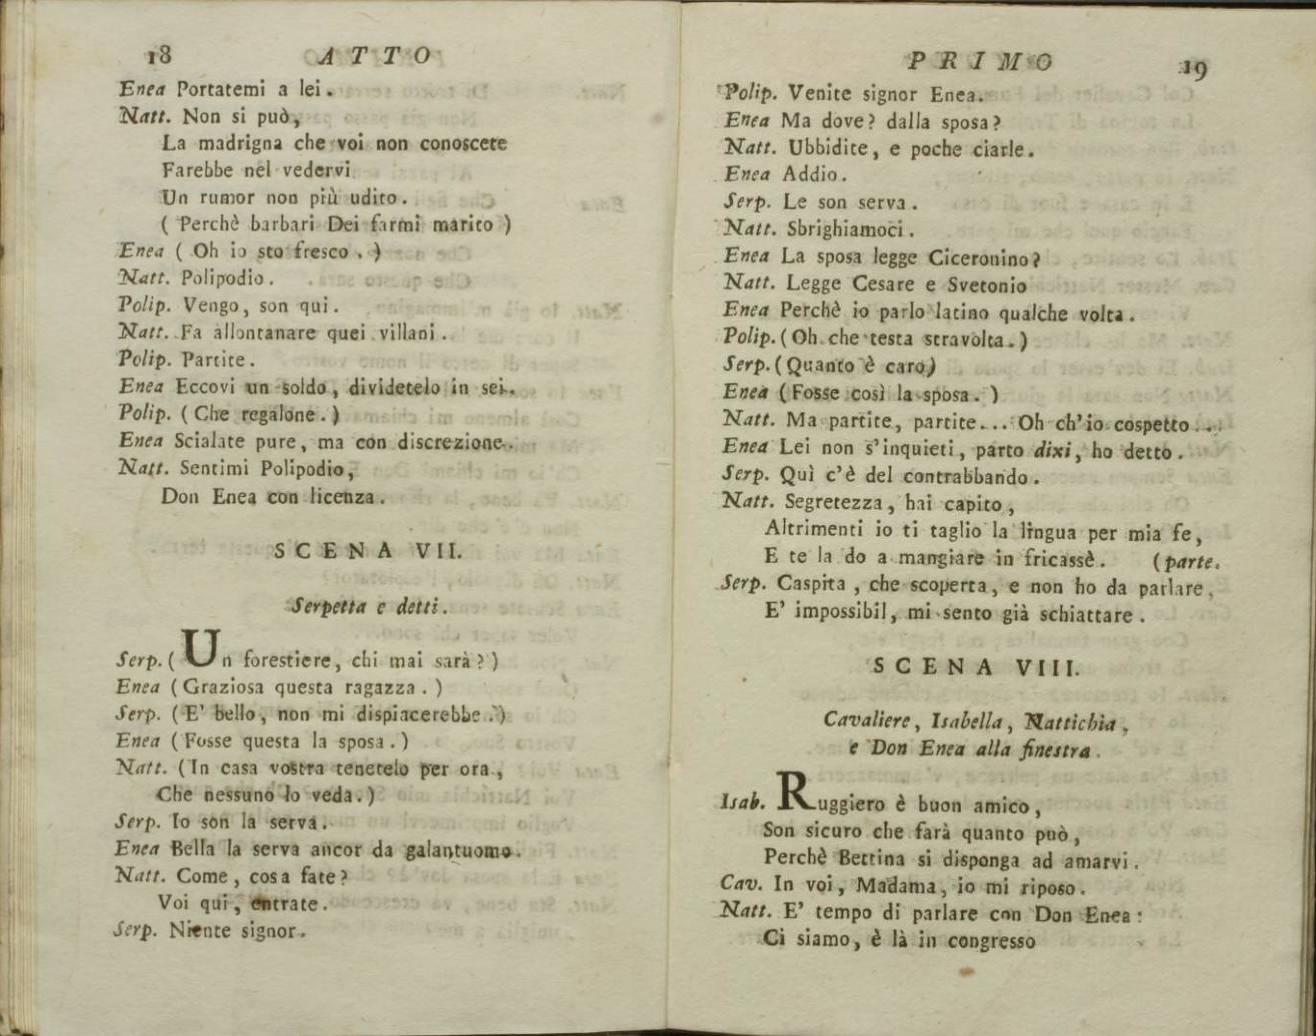 18 ATTO
Enea Portatemi a lei.
Natt. Non si può,
La madrigna che voi non conoscete
Farebbe nel vedervi
Un rumor non più udito.
( Perchè barbari Dei farmi marito )
Enea ( Oh io sto fresco . )
Natt. Polipodio.
Polip. Vengo, son qui.
Natt. Fa allontanare quei villani.
Polip. Partite.
Enea Eccovi un soldo, dividetelo in sei.
Polip. (Che regalone.)
Enea Scialate pure, ma con discrezione.
Natt. Sentimi Polipodio,
Don Enea con licenza.
SCENA VII.
Serpetta e detti.
Serp. (Un forestiere, chi mai sarà?)
Enea (Graziosa questa ragazza.)
Serp. (E' bello, non mi dispiacerebbe.)
Enea (Fosse questa la sposa.)
Natt. (In casa vostra tenetelo per ora,
Che nessuno lo veda.)
Serp. Io son la serva.
Enea Bella la serva ancor da galantuomo.
Natt. Come, cosa fate?
Voi qui, entrate.
Serp. Niente signor.
PRIMO 19
Polip. Venite signor Enea.
Enea Ma dove? dalla sposa?
Natt. Ubbidite, e poche ciarle.
Enea Addio.
Serp. Le son serva.
Natt. Sbrighiamoci.
Enea La sposa legge Ciceronino?
Natt. Legge Cesare e Svetonio
Enea Perchè io parlo latino qualche volta.
Polip. (Oh che testa stravolta.)
Serp. (Quanto è caro)
Enea (Fosse così la sposa.)
Natt. Ma partite, partite... Oh ch'io cospetto...
Enea Lei non s'inquieti, parto dixi, ho detto.
Serp. Quì c'è del contrabbando.
Natt. Segretezza, hai capito,
Altrimenti io ti taglio la lingua per mia fe,
E te la do a mangiare in fricassè. (parte.
Serp. Caspita, che scoperta, e non ho da parlare,
E' impossibil, mi sento già schiattare.
SCENA VIII.
Cavaliere, Isabella, Nattichia,
e Don Enea alla finestra.
Isab. Ruggiero è buon amico,
Son sicuro che farà quanto può,
Perchè Bettina si disponga ad amarvi.
Cav. In voi, Madama, io mi riposo.
Natt. E' tempo di parlare con Don Enea:
Ci siamo, è là in congresso